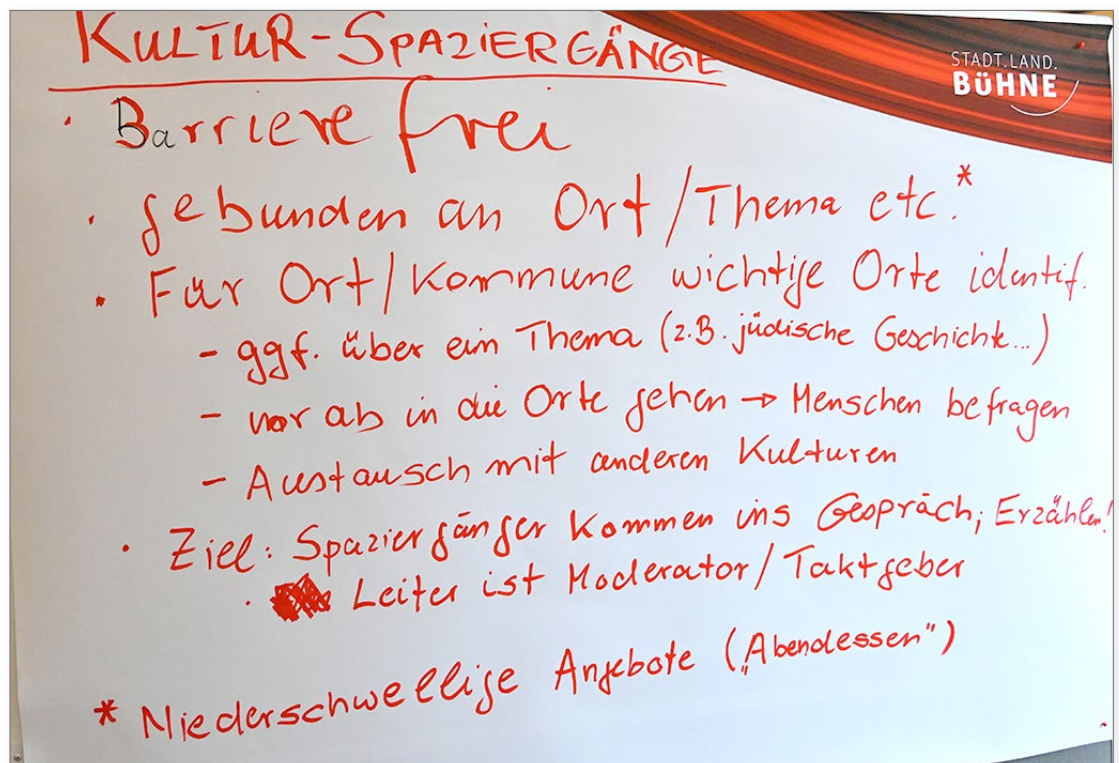 KULTUR-SPAZIERGÄNGE
STADT.LAND.
BÜHNE
· Barriere frei
· gebunden an Ort/Thema etc.*
· Für Ort/Kommune wichtige Orte identif.
- ggf. über ein Thema (z.B. jüdische Geschichte...)
- vor ab in die Orte gehen → Menschen befragen
- Austausch mit anderen Kulturen
· Ziel: Spaziergänger kommen ins Gespräch; Erzählen!
· Leiter ist Moderator/Taktgeber
* Niederschwellige Angebote („Abendessen")